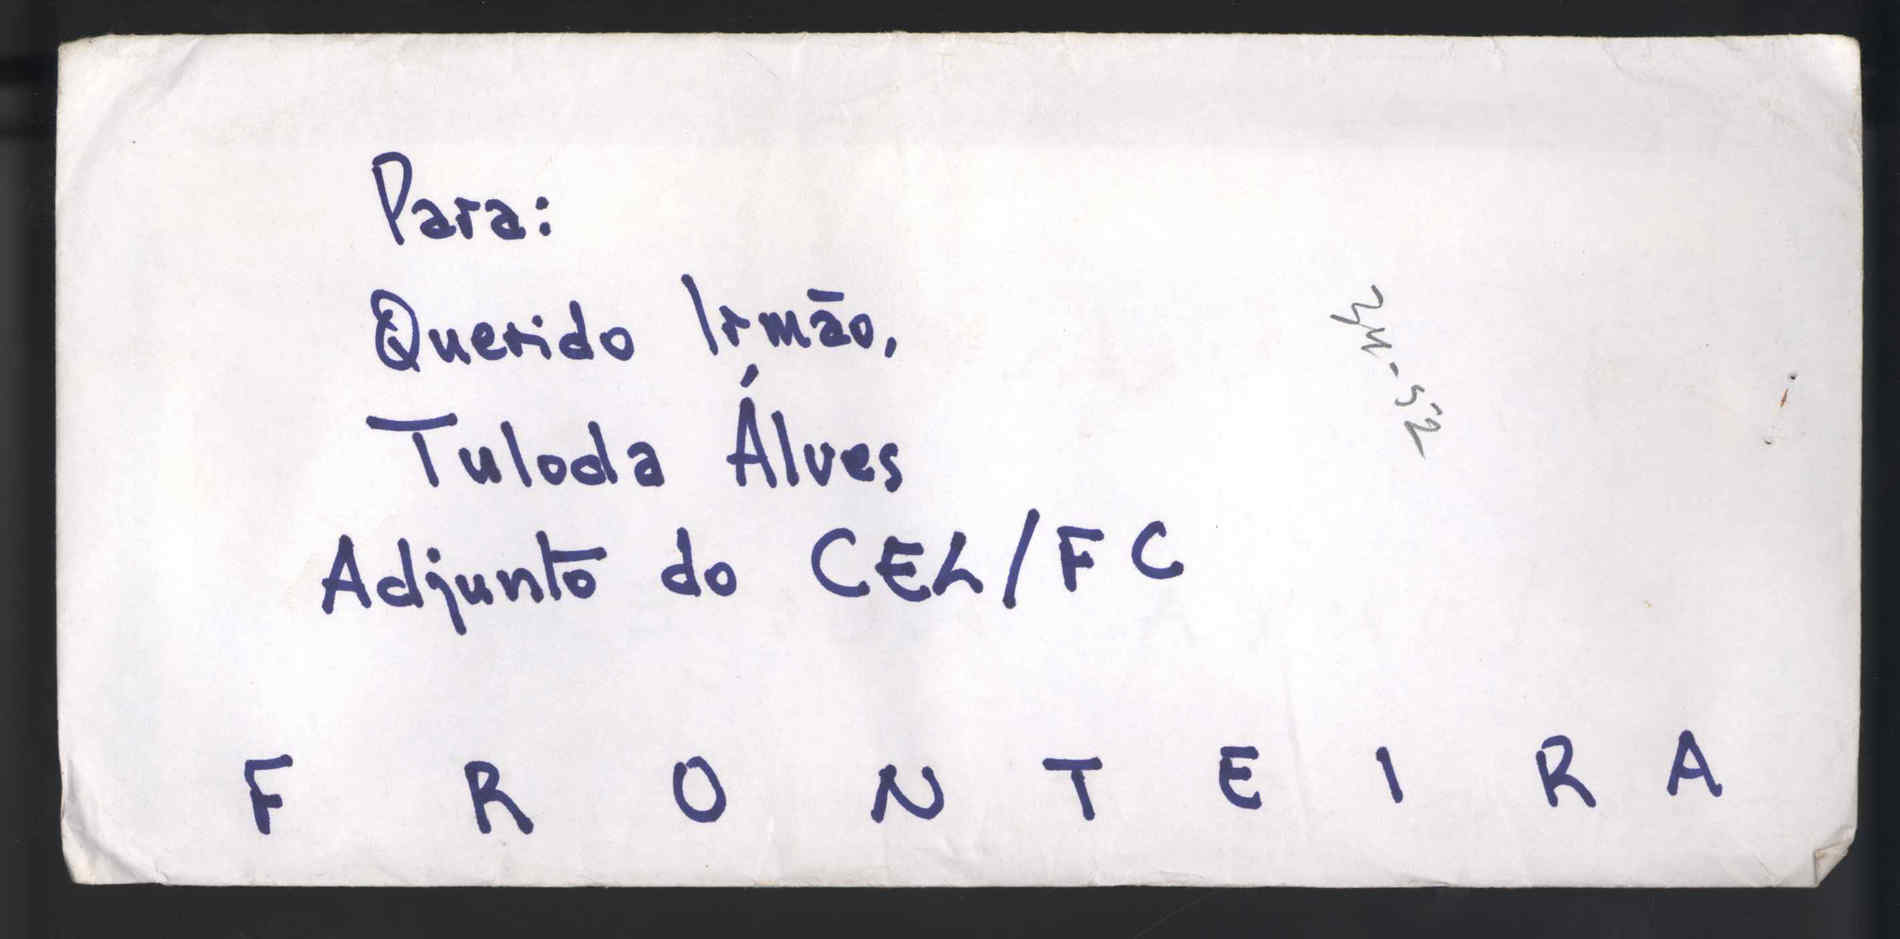 Para:
Querido Irmão,
Tuloda Álves
Adjunto do CEL/FC
F R O N T E I R A